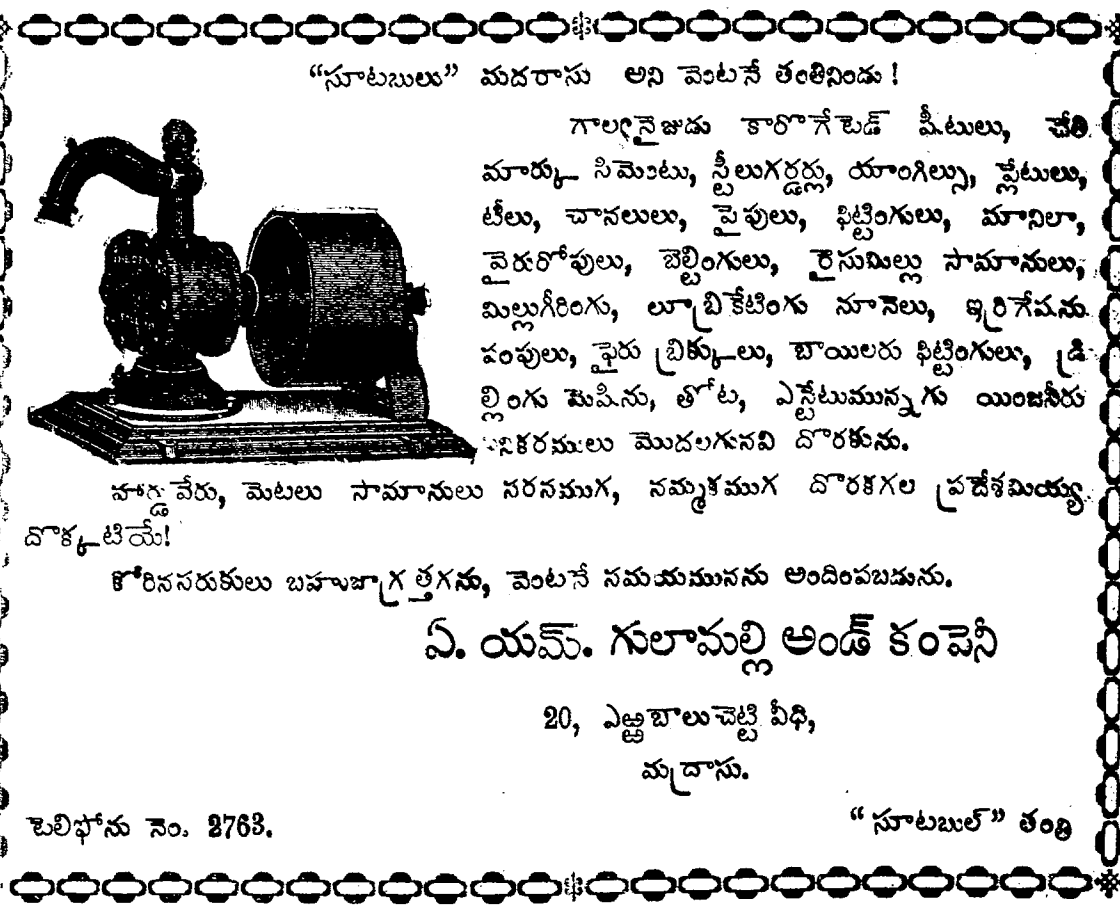 “సూటబులు” మదరాసు అని వెంటనే తంతినిండు !
గాల్వనైజుడు కారొగేటెడ్ షీటులు, చేతి
మార్కు సిమెంటు, స్టీలుగర్డర్లు, యాంగిల్సు, ప్లేటులు,
టీలు, చానలులు, పైపులు, ఫిట్టింగులు, మానిలా,
వైరురోపులు, బెల్టింగులు, రైసుమిల్లు సామానులు,
మిల్లుగీరింగు, లూబ్రికేటింగు నూనెలు, ఇర్రిగేషను
పంపులు, ఫైరు బ్రిక్కులు, బాయిలరు ఫిట్టింగులు, డ్రి
ల్లింగు మెషిను, తోట, ఎస్టేటుమున్నగు యింజనీరు
పనికరములు మొదలగునవి దొరకును.
హార్డువేరు, మెటలు సామానులు సరసముగ, నమ్మకముగ దొరకగల ప్రదేశమియ్య
దొక్కటియే!
కోరినసరుకులు బహుజాగ్రత్తగను, వెంటనే సమయమునను అందింపబడును.
ఏ. యమ్. గులామల్లి అండ్ కంపెనీ
20, ఎఱ్ఱబాలుచెట్టి వీధి,
మద్రాసు.
టెలిఫోను నెం. 2763.
“సూటబుల్” తంతి